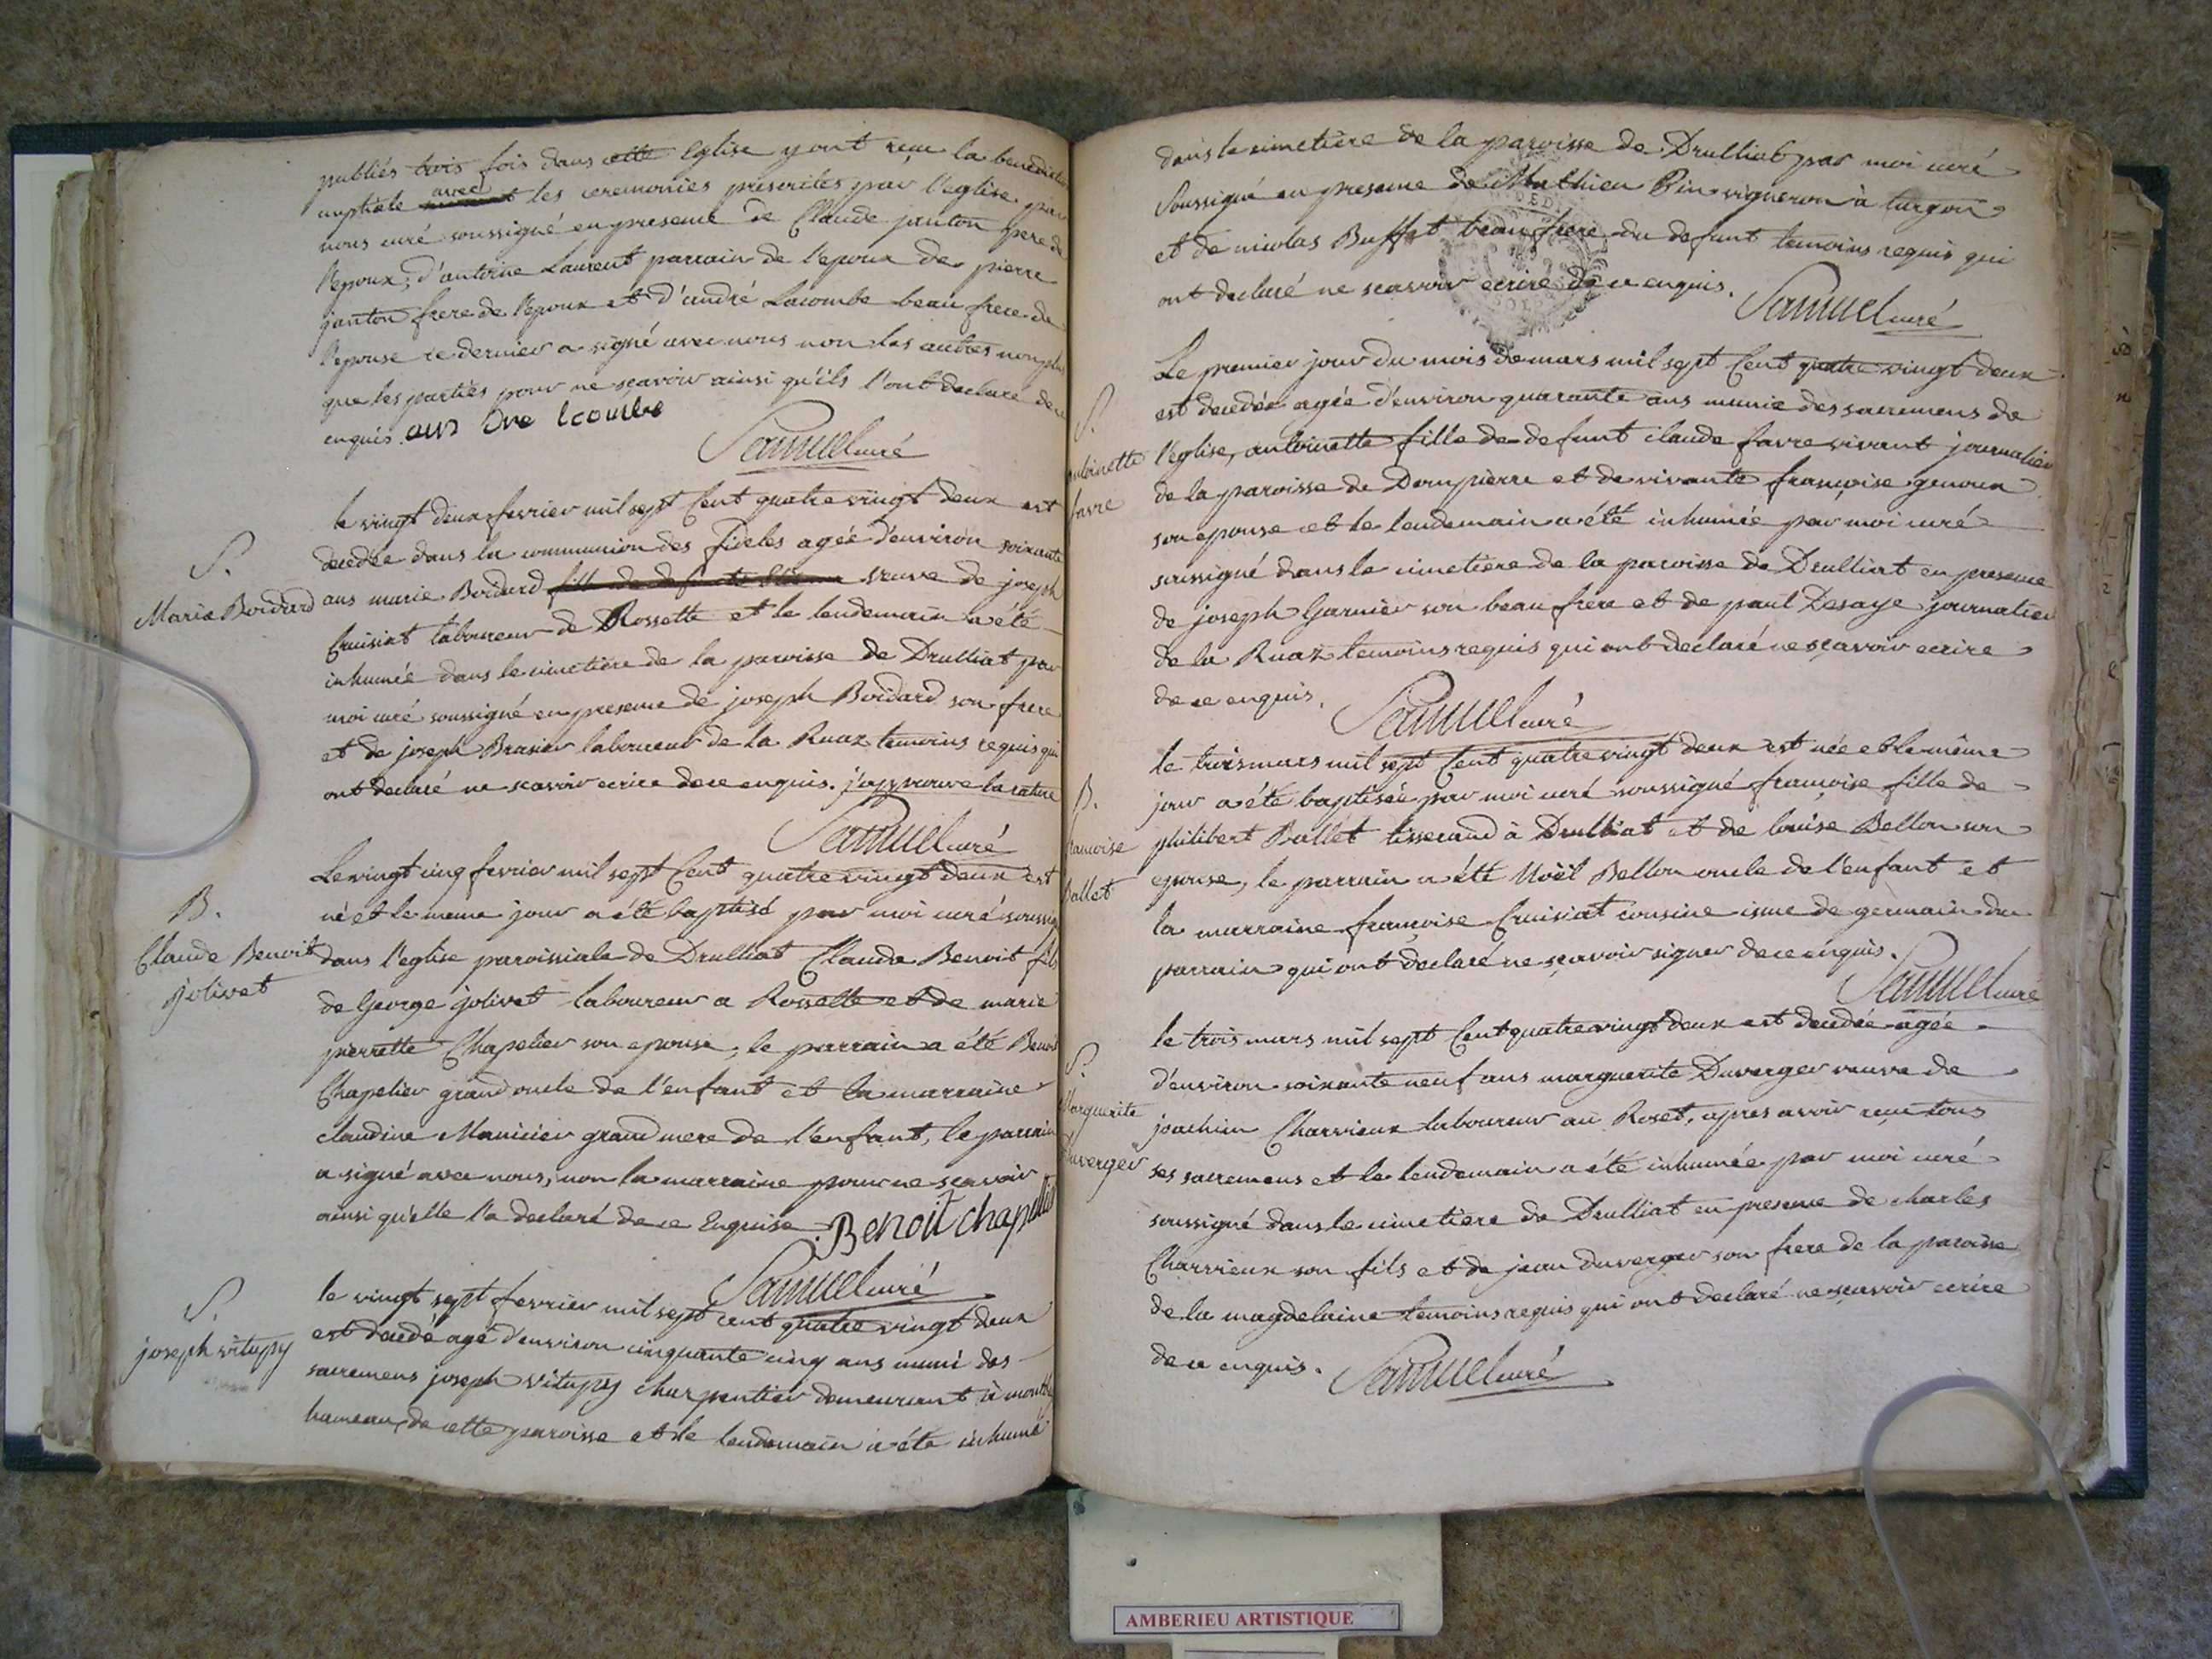 publiés trois fois dans cette Eglise y ont reçu la benediction
nuptiale avec les ceremonies prescrites par l'eglise par
nous curé soussigné en presence de Claude janton pere de
l'epoux, d'antoine Laurent parrain de l'epoux de pierre
janton frere de l'epoux et d'andré Lacombe beau frere de
l'epouse ce dernier a signé avec nous non les autres non plus
que les parties pour ne sçavoir ainsi qu'ils l'ont declaré de ce
enquis
Samuel curé
S.
Marie Boidard
le vingt deux fevrier mil sept Cent quatre vingt deux est
decedée dans la communion des fideles agée d'environ soixante
ans marie Boidard veuve de joseph
Cruisiat laboureur de Rossette et le lendemain a été
inhumée dans le cimetiere de la paroisse de Drulliat par
moi curé soussigné en presence de joseph Boidard son frere
et de joseph Brasier laboureur de la Ruaz temoins requis qui
ont declaré ne scavoir ecrire de ce enquis. j'approuve la rature
Samuel curé
B.
Claude Benoit
jolivet
Le vingt cinq fevrier mil sept Cent quatre vingt deux est
né et le meme jour a été baptisé par moi curé soussigné
dans l'eglise paroissiale de Drulliat Claude Benoit fils
de George jolivet laboureur a Rossette et de marie
pierrette Chapelier son epouse, le parrain a été Benoit
Chapelier grand oncle de l'enfant et la marraine
claudine Manicier grand mere de l'enfant, le parrain
a signé avec nous, non la marraine pour ne scavoir
ainsi qu'elle l'a declaré de ce Enquise. Benoit chapelier
Samuel curé
S.
joseph vitupy
le vingt sept fevrier mil sept cent quatre vingt deux
est decedé agé d'environ cinquante cinq ans muni des
sacremens joseph vitupy charpentier demeurant à
hameau de cette paroisse et le lendemain a été inhumé
dans le cimetière de la paroisse de Drulliat par moi curé
Soussigné en presence de Mathieu Pin vigneron à turgon
et de nicolas Buffet beau frere du defunt temoins requis qui
ont declaré ne scavoir ecrire de ce enquis.
Samuel curé
S.
antoinette
favre
Le premier jour du mois de mars mil sept Cent quatre vingt deux
est decedée agée d'environ quarante ans munie des sacremens de
l'eglise, antoinette fille de defunt claude favre vivant journalier
de la paroisse de Dompierre et de vivante françoise genoux
son epouse et le lendemain a été inhumée par moi curé
soussigné dans le cimetiere de la paroisse de Drulliat en presence
de joseph Garnier son beau frere et de paul Desaye journalier
de la Ruaz temoins requis qui ont declaré ne sçavoir ecrire
de ce enquis.
Samuel curé
B.
francoise
Ballet
le trois mars mil sept Cent quatre vingt deux est née et le même
jour a été baptisée par moi curé soussigné françoise fille de
philibert Ballet tisserand à Drulliat et de louise Bellon son
epouse, le parrain a été Noël Bellon oncle de l'enfant et
la marraine françoise Cruisiat cousine issue de germain du
parrain qui ont declaré ne sçavoir signer de ce enquis.
Samuel curé
S.
Marguerite
Duverger
le trois mars mil sept Cent quatre vingt deux est decedée agée
d'environ soixante neuf ans marguerite Duverger veuve de
joachim Charvieux laboureur au Roset, apres avoir reçu tous
ses sacremens et le lendemain a été inhumée par moi curé
soussigné dans le cimetiere de Drulliat en presence de charles
Charvieux son fils et de jean duverger son frere de la paroisse
de la magdelaine temoins requis qui ont declaré ne sçavoir ecrire
de ce enquis.
Samuel curé
AMBERIEU ARTISTIQUE